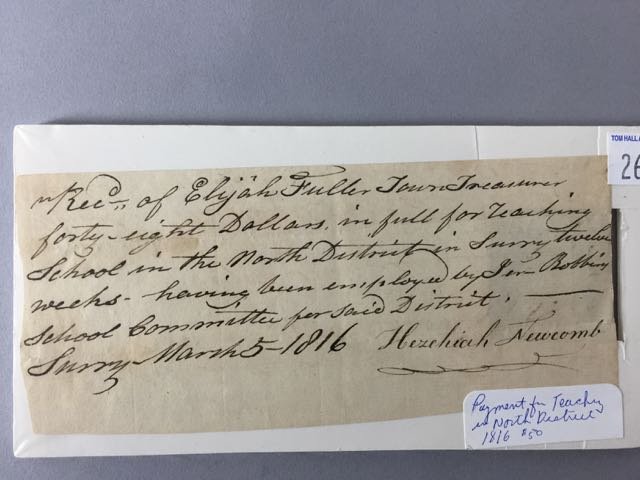 Rec'd of Elijah Fuller Town Treasurer
forty-eight Dollars, in full for teaching
School in the North District in Surry twelve
weeks - having been employed by Jer Robbins
School Committee for said District.
Surry March 5 - 1816 Hezekiah Newcomb
TOM HALL A
26
Payment for Teaching
in North District
1816 $50